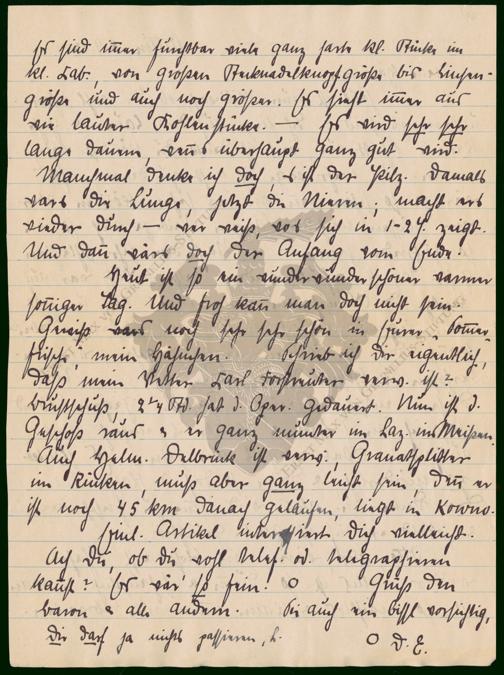 Es sind immer furchtbar viele ganz harte kl. Stücke im
kl. Lab., von großen Stecknadelknopfgröße bis Linsen-
größe und auch noch größer. Es sieht immer aus
wie lauter Kohlenstücke. — Es wird sehr sehr
lange dauern, wenns überhaupt ganz gut wird.
Manchmal denke ich doch, s ist der Pilz. Damals
wars die Lunge, jetzt die Nieren; machts
wieder durch — wer weiß wo sich in 1-2 J. zeigt.
Und dann wärs doch der Anfang vom Ende.
Heut ist so ein wunderwunderschöner warmer
sonniger Tag. Und froh kann man doch nicht sein.
Gewiß wars noch sehr sehr schön in
frische, mein Häschen. Schrieb ich Dir eigentlich,
daß mein Vetter Carl Forstreuter verw. ist?
Bruchschuß, 2 1/4 Std. hat d. Oper. gedauert. Nun ist d.
Geschoß raus & er ganz munter im Laz. in Meißen.
Auch Helm. Delbrück ist verw., Granatsplitter
im Rücken, muß aber ganz leicht sein, denn er
ist noch 45 km danach gelaufen, liegt in Kowno.
Artikel interessiert Dich vielleicht.
Ach Du, ob Du wohl telef. od. telegraphieren
kannst? Es wär so fein. O Grüß den
Baron & alle andern. Sei auch ein bissl vorsichtig,
Dir darf ja nichts passieren, O D. E.